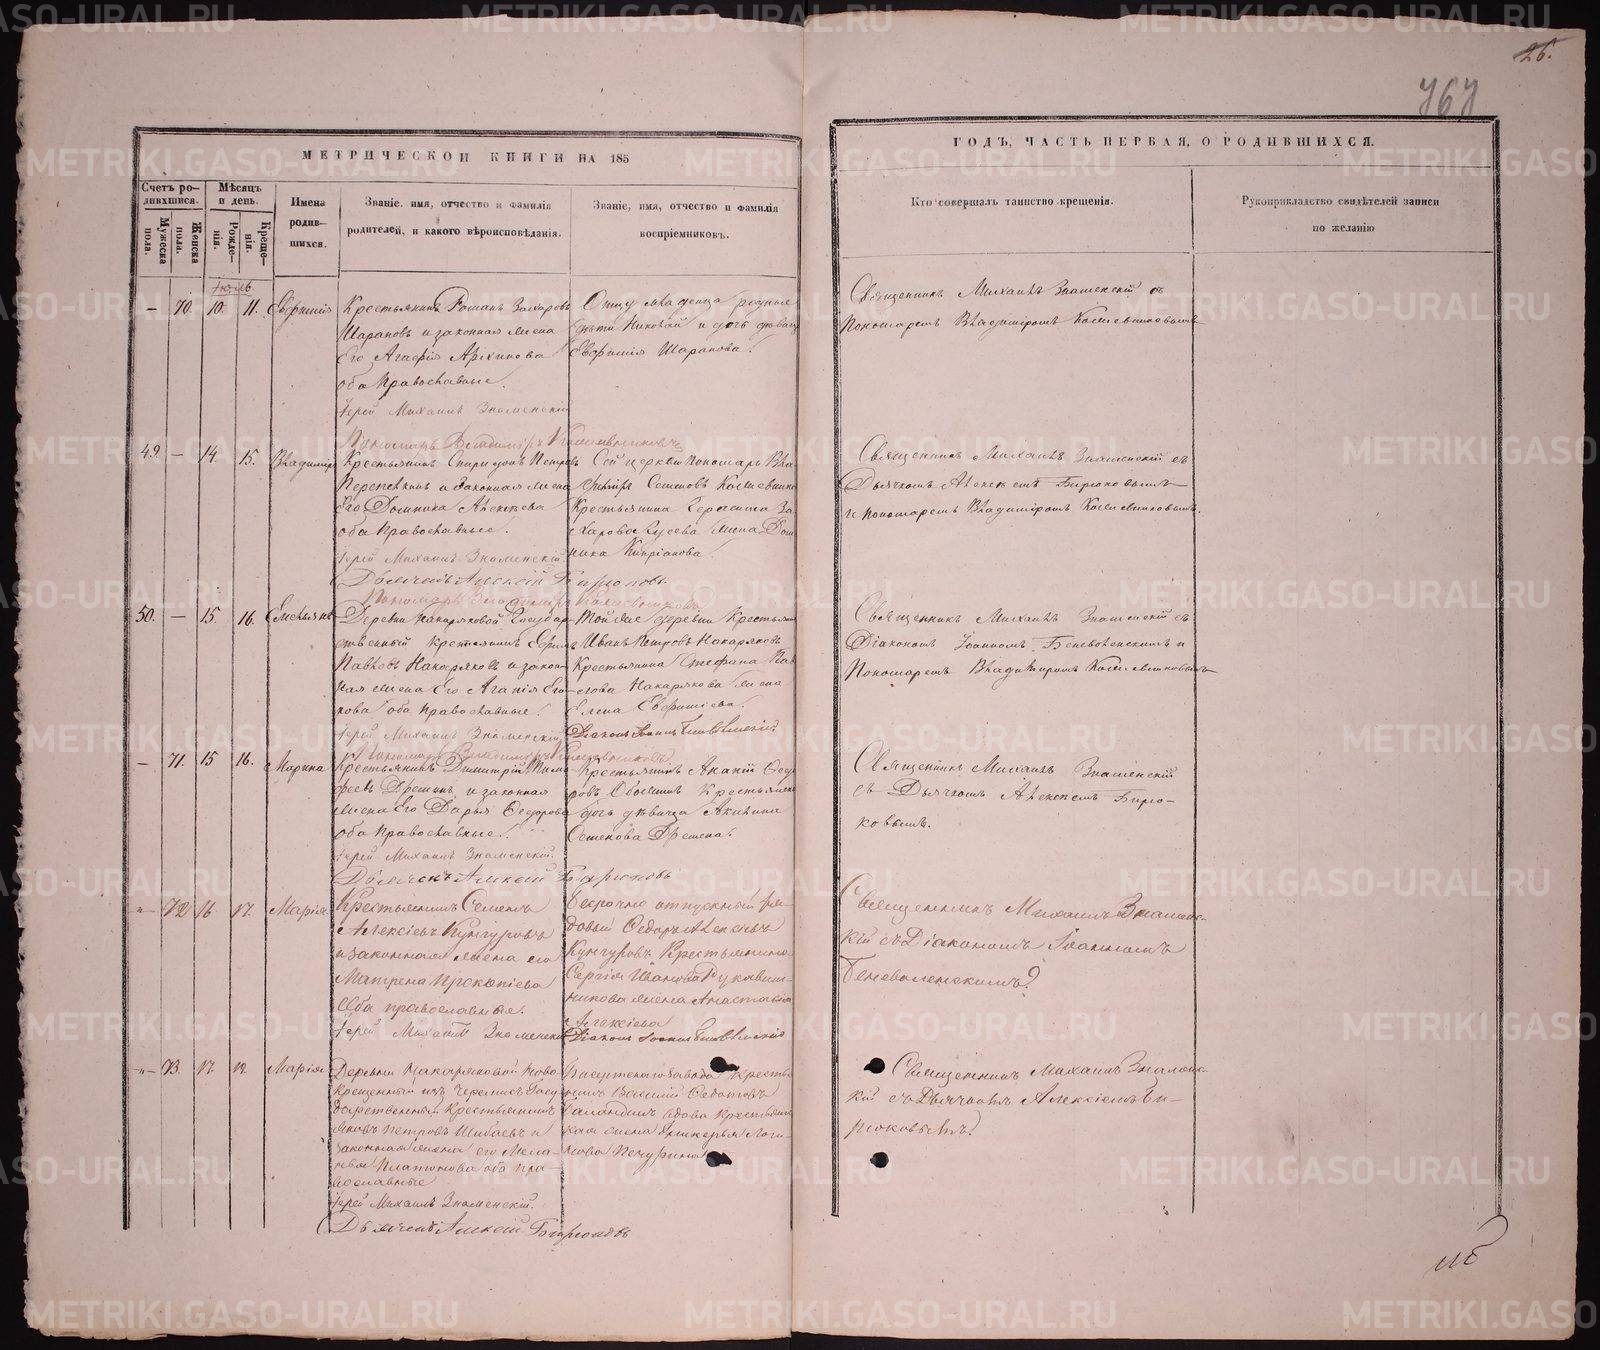 26.
767
МЕТРИЧЕСКОЙ КНИГИ НА 185
ГОДЪ, ЧАСТЬ ПЕРВАЯ, О РОДИВШИХСЯ.
Счетъ ро-
дившихся.
Мужеска
пола.
Женска
пола.
Мѣсяцъ
и день.
Рожде-
нія.
Креще-
нія.
Имена
родив-
шихся.
Званіе, имя, отчество и фамилія
родителей, и какого вѣроисповѣданія.
Званіе, имя, отчество и фамилія
воспріемниковъ.
Кто совершалъ таинство крещенія.
Рукоприкладство свидѣтелей записи
по желанію
Іюль
— 70. 10. 11. Евфимія
Крестьянинъ Романъ Захаровъ
Шарановъ и законная жена
Его Агафія Архипова
оба Православные.
Іерей Михаилъ Знаменскій
Пономарь Владиміръ
Отцу младенца родные
дѣти Николай и дочь дѣвица
Евфимія Шаранова.
Священникъ Михаилъ Знаменскій съ
Пономаремъ Владиміромъ
49. — 14. 15. Владиміръ
Крестьянинъ Спиридонъ Петровъ
и Законная жена
Его Домника Алексѣева
оба Православные.
Іерей Михаилъ Знаменскій
Дьячекъ Алексій Бирюковъ
Пономарь Владиміръ
Сей церкви Пономарь Вла-
диміръ Семеновъ
Крестьянина Терентія За-
харова Гусева жена Дом-
ника Кипріанова.
Священникъ Михаилъ Знаменскій съ
Дьячкомъ Алексѣемъ Бирюковымъ
и пономаремъ Владиміромъ
50. — 15. 16. Емельянъ
Деревни Макаряковой Государ-
ственный Крестьянинъ Ефимъ
Павловъ Макаряковъ и закон-
ная жена Его Агапія Его-
рова оба Православные.
Іерей Михаилъ Знаменскій
Пономарь Владиміръ
Той же деревни Крестьян-
Иванъ Петровъ Макаряковъ
Крестьянина Стефана Пав-
лова Макарякова жена
Елена Евфиміева.
Діаконъ Іоаннъ Беневоленскій
Священникъ Михаилъ Знаменскій съ
Діакономъ Іоанномъ Беневоленскимъ и
Пономаремъ Владиміромъ
— 71. 15 16. Марина
Крестьянинъ Димитрій Тимо-
феевъ и законная
жена Его Дарья Ѳедорова
оба Православные.
Іерей Михаилъ Знаменскій.
Дьячекъ Алексій Бирюковъ
Крестьянинъ Ананій Ѳедо-
ровъ Крестьянская
дочь дѣвица Акилина
Семенова
Священникъ Михаилъ Знаменскій
съ Дьячкомъ Алексѣемъ Бирю-
ковымъ.
-"- 72 16 17. Марія
Крестьянинъ Семенъ
Алексіевъ Кунгуровъ
и законная жена его
Матрена Прокопіева
Оба православные.
Іерей Михаилъ Знаменскій
безсрочно отпускный ря-
довый Ѳедоръ Алексѣевъ
Кунгуровъ Крестьянина
Сергія Иванова Рукавиш-
никова жена Анастасія
Алексіева
Діаконъ Іоаннъ Беневоленскій
Священникъ Михаилъ Знамен-
скій съ Діакономъ Іоанномъ
Беневоленскимъ.
-"- 73. 17. 17. Марія
Деревни Макаряковой Ново-
крещенный изъ черемисъ Госу-
дарственный Крестьянинъ
Яковъ Петровъ Шибаевъ и
Законная жена его Мела-
нья Платонова оба пра-
вославные
Іерей Михаилъ Знаменскій.
Дьячекъ Алексій Бирюковъ
завода Кресть-
янинъ Василій
вдова Крестьян-
ская жена Гликерья Логи-
нова
Священникъ Михаилъ Знамен-
скій съ Дьячкомъ Алексіемъ Би-
рюковымъ.
METRIKI.GASO-URAL.RU